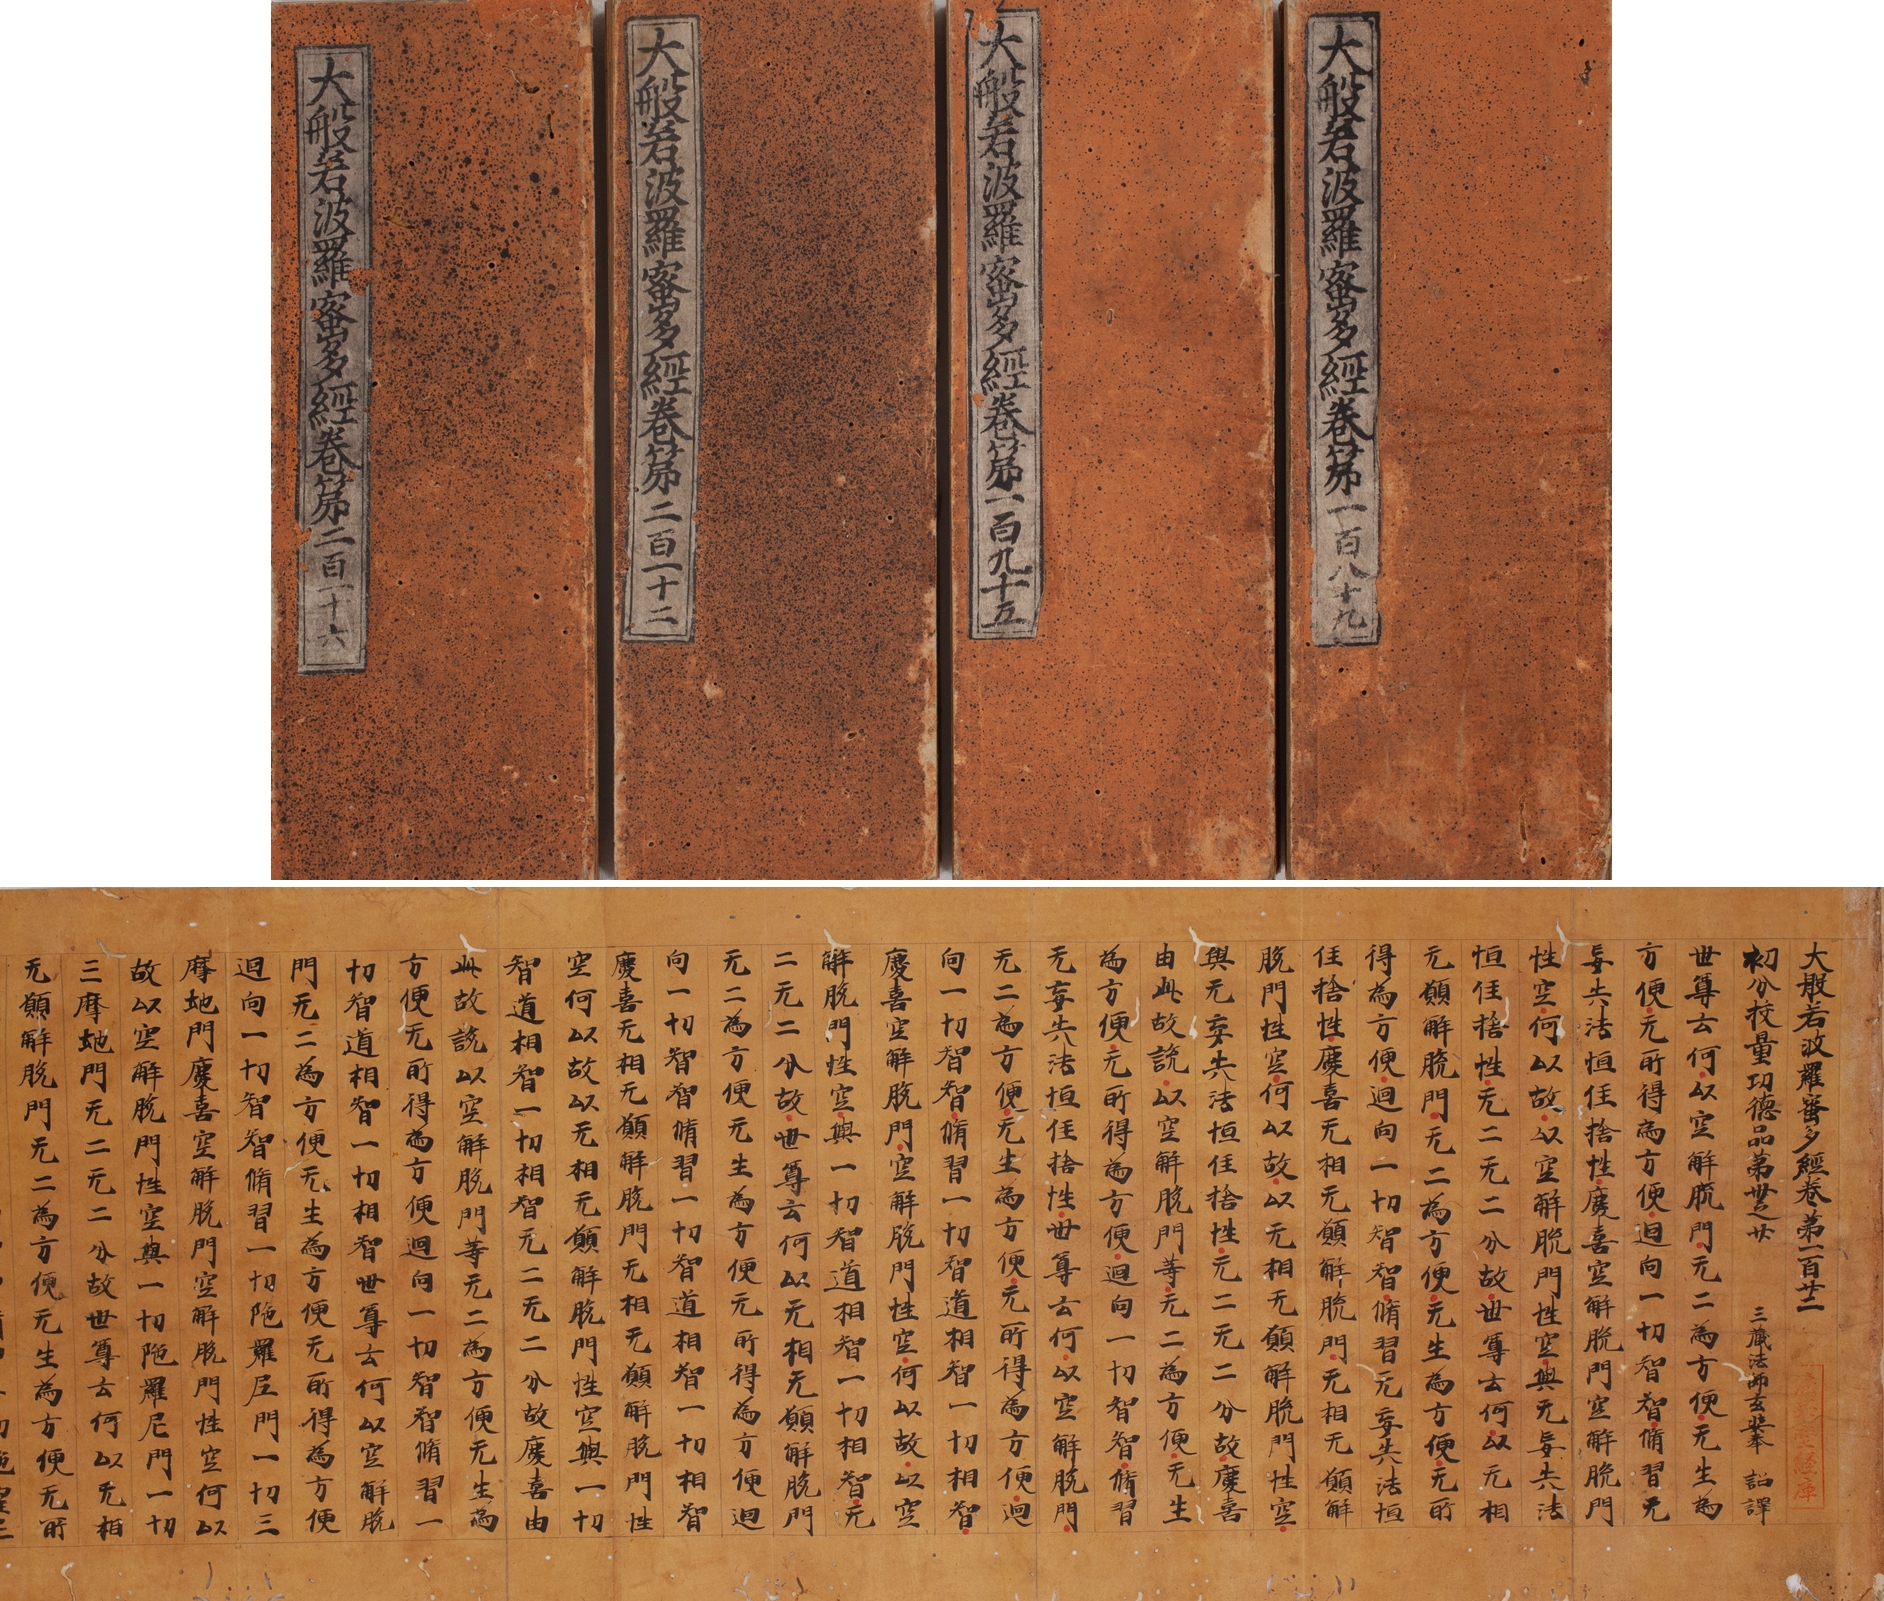 大般若波羅蜜多經卷第一百八十九
大般若波羅蜜多經卷第一百九十五
大般若波羅蜜多經卷第二百一十二
大般若波羅蜜多經卷第二百一十六
大般若波羅蜜多經卷第一百廿二
初分校量功德品第卅之廿 三藏法師玄奘奉 詔譯
世尊云何以空解脫門无二為方便无生為
方便无所得為方便迴向一切智智脩習无
妄失法恒住捨性慶喜空解脫門空解脫門
性空何以故以空解脫門性空與无妄失法
恒住捨性无二无二分故世尊云何以无相
无願解脫門无二為方便无生為方便无所
得為方便迴向一切智智脩習无妄失法恒
住捨性慶喜无相无願解脫門无相无願解
脫門性空何以故以无相无願解脫門性空
與无妄失法恒住捨性无二无二分故慶喜
由此故說以空解脫門等无二為方便无生
為方便无所得為方便迴向一切智智脩習
无妄失法恒住捨性世尊云何以空解脫門
无二為方便无生為方便无所得為方便迴
向一切智智脩習一切智道相智一切相智
慶喜空解脫門空解脫門性空何以故以空
解脫門性空與一切智道相智一切相智无
二无二分故世尊云何以无相无願解脫門
无二為方便无生為方便无所得為方便迴
向一切智智脩習一切智道相智一切相智
慶喜无相无願解脫門无相无願解脫門性
空何以故以无相无願解脫門性空與一切
智道相智一切相智无二无二分故慶喜由
此故說以空解脫門等无二為方便无生為
方便无所得為方便迴向一切智智脩習一
切智道相智一切相智世尊云何以空解脫
門无二為方便无生為方便无所得為方便
迴向一切智智脩習一切陁羅尼門一切三
摩地門慶喜空解脫門空解脫門性空何以
故以空解脫門性空與一切陁羅尼門一切
三摩地門无二无二分故世尊云何以无相
无願解脫門无二為方便无生為方便无所